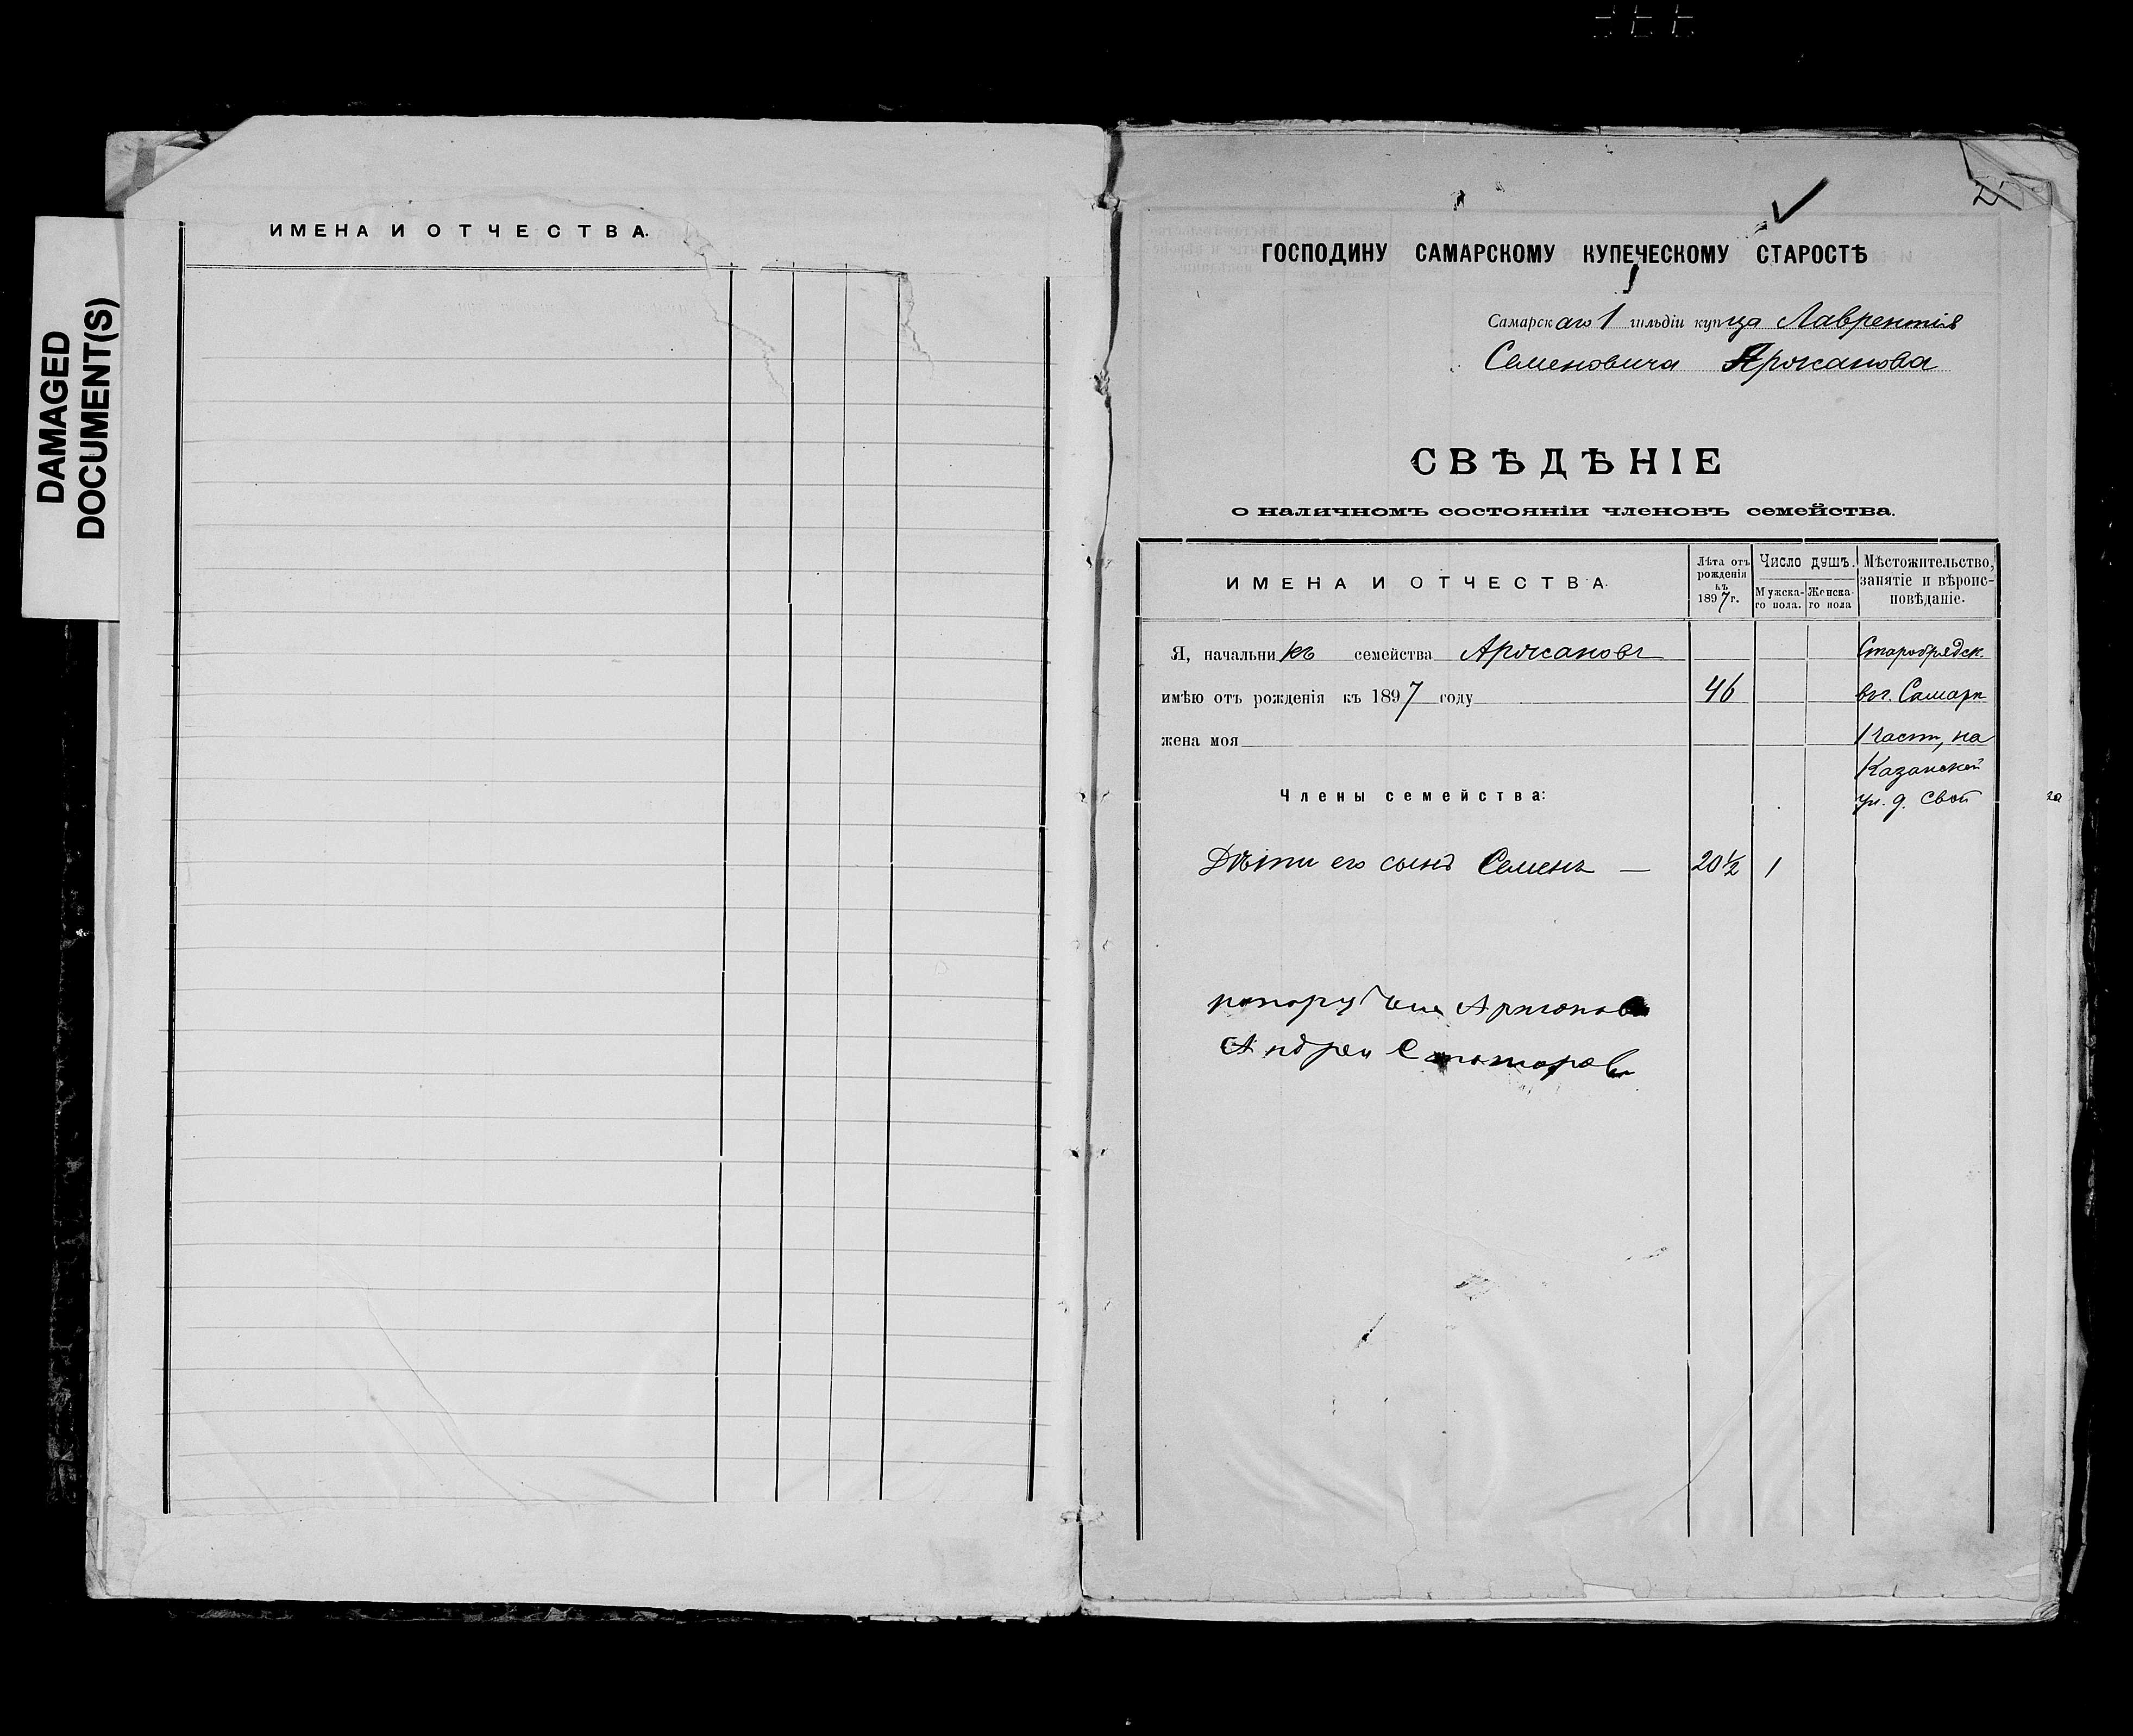 DAMAGED
DOCUMENT(S)
ИМЕНА И ОТЧЕСТВА.
ГОСПОДИНУ САМАРСКОМУ КУПЕЧЕСКОМУ СТАРОСТѢ
Самарскаго 1 гильдіи купца Лаврентія
Семеновича Аржанова
СВѢДѢНІЕ
о наличномъ состояніи членовъ семейства.
ИМЕНА И ОТЧЕСТВА.
Лѣта отъ рожденія къ 1897 г.
Число душъ.
Мужска-го пола.
Женска-го пола
Мѣстожительство, занятіе и вѣроис-повѣданіе.
Я, начальникъ семейства Аржановъ
Старобрядск.
имѣю отъ рожденія къ 1897 году 46
въ г. Самарѣ
жена моя
1 част, на
Казанской
Члены семейства:
ул. д. свой
Дѣти его сынъ Семенъ — 20½ 1
Андреи